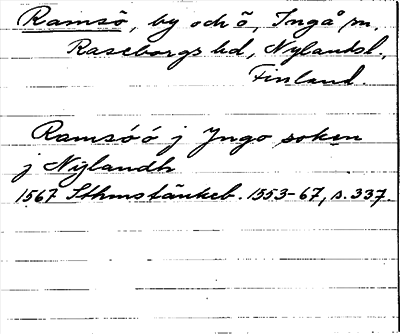 Ramsö, by och ö, Ingå sn.
Raseborgs hd, Nylandsl.,
Finland.
Ramsóó j Yngo soken
j Nylandh
1567 Sthmstänkeb. 1553-67, s. 337.